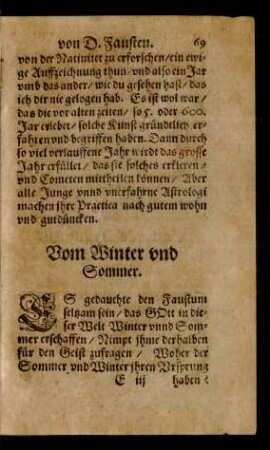 von D. Fausten. 69
von der Nativitet zu erforschen/ ein ewi-
ge Auffzeichnung thun/ vnd also ein Jar
vmb das ander/ wie du gesehen hast/ das
ich dir nie gelogen hab. Es ist wol war/
das die vor alten zeiten/ so 5. oder 600.
Jar erlebet/ solche Kunst gründtlich er-
fahren vnd begriffen haben. Dann durch
so viel verlauffene Jahr wirdt das grosse
Jahr erfüllet/ das sie solches erkleren/
vnd Cometen mittheilen können/ Aber
alle Junge vnnd vnerfahrne Astrologi
machen jhre Practica nach gutem wohn
vnd gutdüncken.
Vom Winter vnd
Sommer.
ES gedauchte den Faustum
seltzam sein/ das GOtt in die-
ser Welt Winter vnnd Som-
mer erschaffen/ Nimpt jhme derhalben
für den Geist zufragen/ Woher der
Sommer vnd Winter jhren Vrsprung
E iij haben?